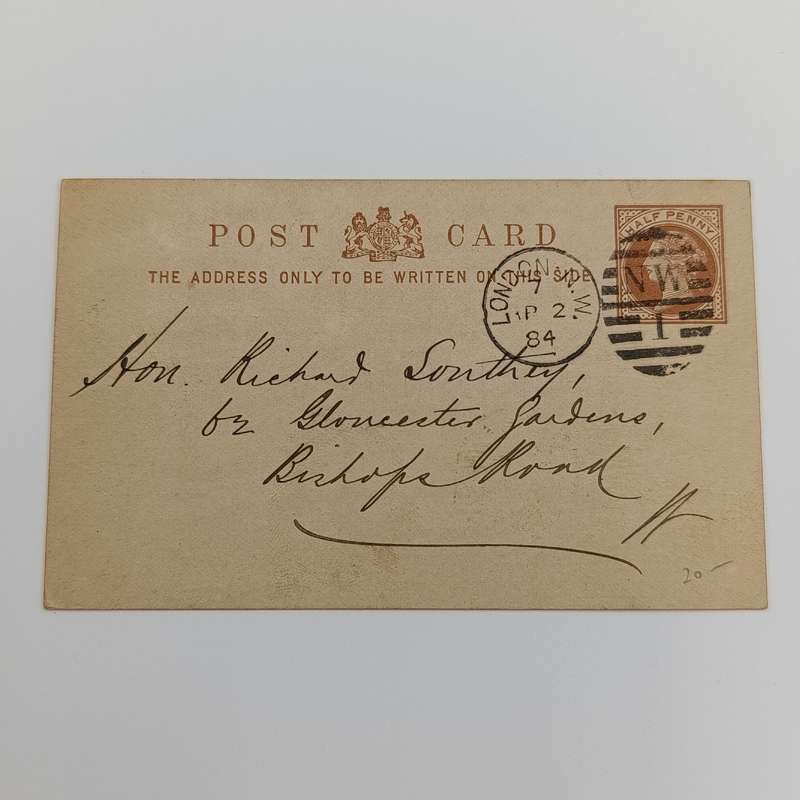 POST CARD
THE ADDRESS ONLY TO BE WRITTEN ON THIS SIDE
HALF PENNY
LONDON. N.W.
7
AP 2
84
N.W
1
Hon. Richard Southey,
62 Gloucester Gardens,
Bishops Road
W
20-